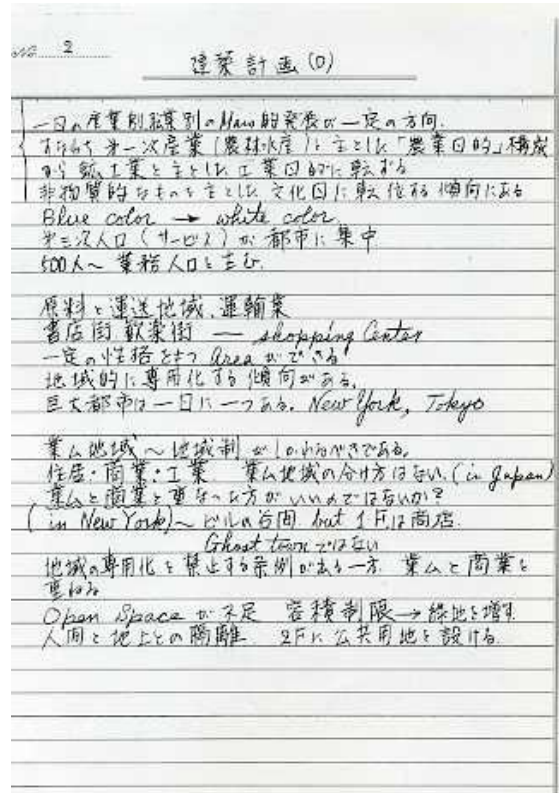 No 2
建築計画(D)
一国の産業別職業別の 的発展が一定の方向.
すなわち第一次産業(農林水産)を主とした「農業国的」構成
から鉱工業を主とした工業国的に転ずる
非物質的なものを主とした文化国に転位する傾向にある
Blue color → white color
第三次人口(サービス)が都市に集中
500人〜業務人口を生む.
原料と運送地域、運輸業
書店街 歓楽街 ― shopping Center
一定の性格をもつ Area ができる
地域的に専用化する傾向がある.
巨大都市は一国に一つある. New York, Tokyo
業ム地域〜地域制がしかれるべきである.
住居・商業・工業 業ム地域の分け方はない.(in Japan)
業ムと商業と重なった方がいいのではないか?
(in New York)〜ビルの谷間 but 1Fは商店.
Ghost town ではない
地域の専用化を禁止する条例が出る一方 業ムと商業を
重ねる
Open Space が不足 容積制限→緑地を増す.
人間と地上との隔離 2Fに公共用地を設ける.